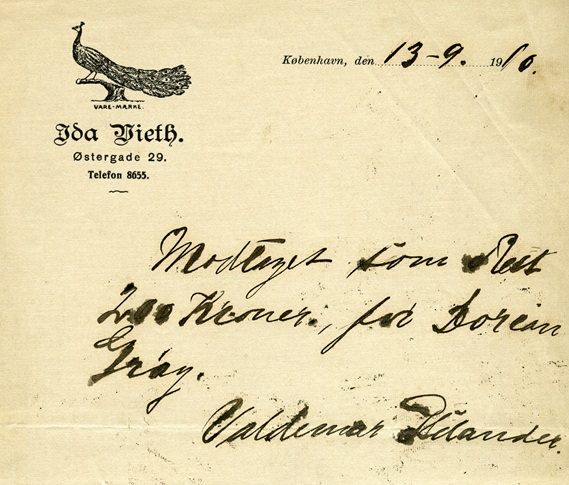 VARE-MÆRKE.
Ida Vieth.
Østergade 29.
Telefon 8655.
København, den 13-9. 1910.
Modtaget som Rest
200 Kroner, for Dorian
Gray.
Valdemar Psilander.